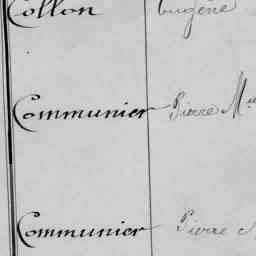 Collon Eugène
Communier Pierre
Communier Pierre